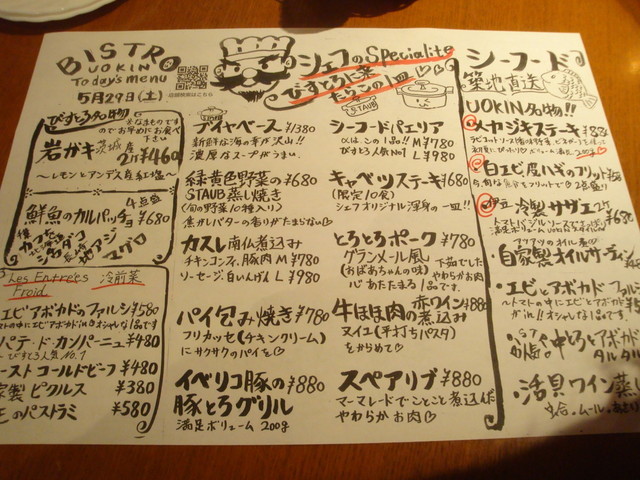 BISTRO
UOKIN
Today's menu
5月29日(土)
びすとろ名物
※なまものです
のでお早めにお食べ
下さい
岩ガキ 茨城産
2ヶ¥460
〜レモンとアンデス産紅塩〜
鮮魚のカルパッチョ
4点盛
¥680
地アジ
マグロ
Les Entrées
Froid
冷前菜
エビアボカドのファルシ¥580
パテ・ド・カンパーニュ¥480
びすとろ人気No.1
ーストコールドビーフ¥480
家製ピクルス ¥380
のパストラミ ¥580
シェフのSpecialité
びすとろに来
たらこの1皿♡♡
STAUB
ブイヤベース¥1380
新鮮な海の幸が沢山!!
濃厚スープがうまい
緑黄色野菜の¥680
STAUB蒸し焼き
(旬の野菜10種入り)
焦がしバターの香りがたまらない♡
カスレ 南仏煮込み
チキンコンフィ、豚肉 M ¥780
ソーセージ、白いんげん L ¥980
パイ包み焼き¥780
フリカッセ(チキンクリーム)
にサクサクのパイを♡
イベリコ豚の¥880
豚とろグリル
満足ボリューム 200g
シーフードパエリア
αはこの1品!! M¥780
びすとろ人気No.1 L¥980
キャベツステーキ¥680
(限定10食)
シェフオリジナル渾身の一皿!!
とろとろポーク ¥780
グランメール風
(おばあちゃんの味)
心あたたまる1品♡
下茹でした
やわらかお肉
牛ほほ肉の赤ワイン¥880
の煮込み
ヌイユ(平打ちパスタ)
をからめて♡
スペアリブ ¥880
マーマレードでことこと煮込んだ
やわらかお肉♡
シーフード
築地直送
UOKIN名物!!
メカジキステーキ¥880
白エビ度ハギのフリット
冷製サザエ 2ヶ
自家製オイルサーディン
・エビとアボカド
〜トマトの中にエビとアボカド
がin!!オシャレな1品です
中とろとアボカド
タルタル
・活貝ワイン蒸